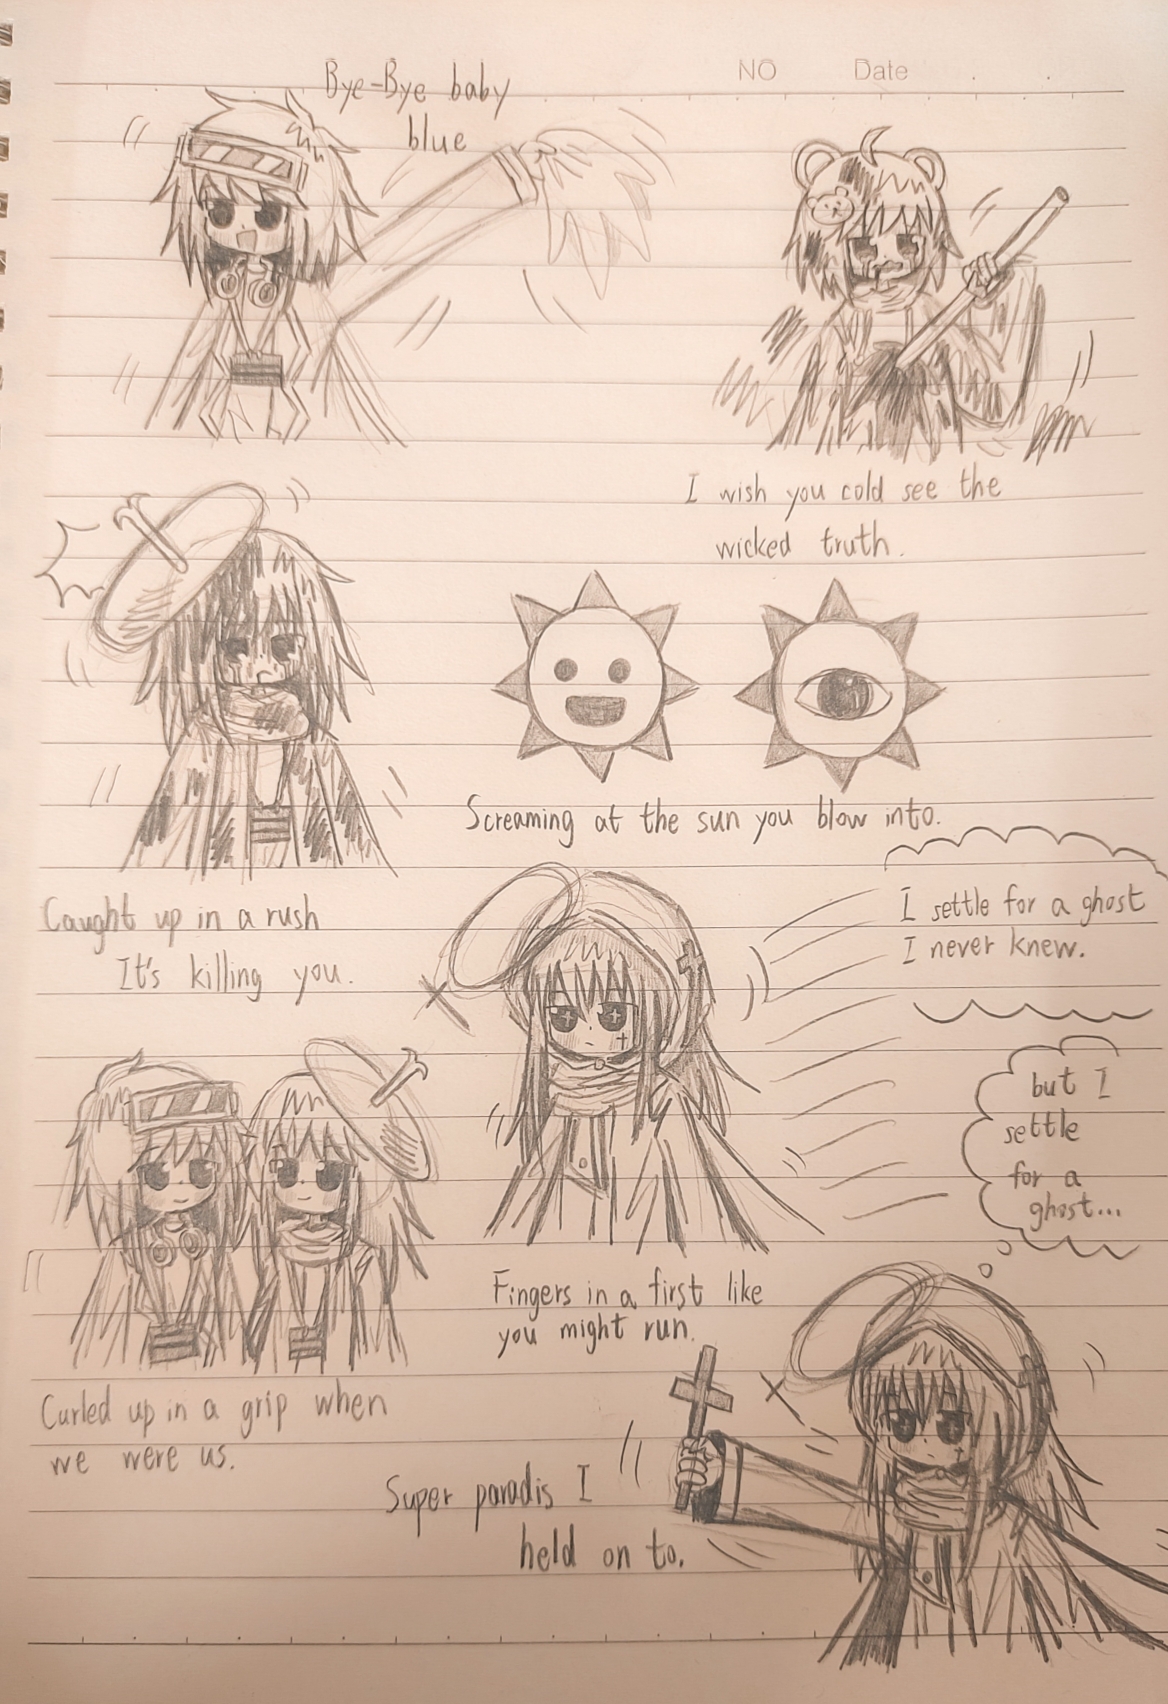 NO Date
Bye-Bye baby
blue
I wish you cold see the
wicked truth.
Screaming at the sun you blow into.
Caught up in a rush
It's killing you.
I settle for a ghost
I never knew.
but I
settle
for a
ghost...
Fingers in a first like
you might run.
Curled up in a grip when
we were us.
Super paradis I
held on to.